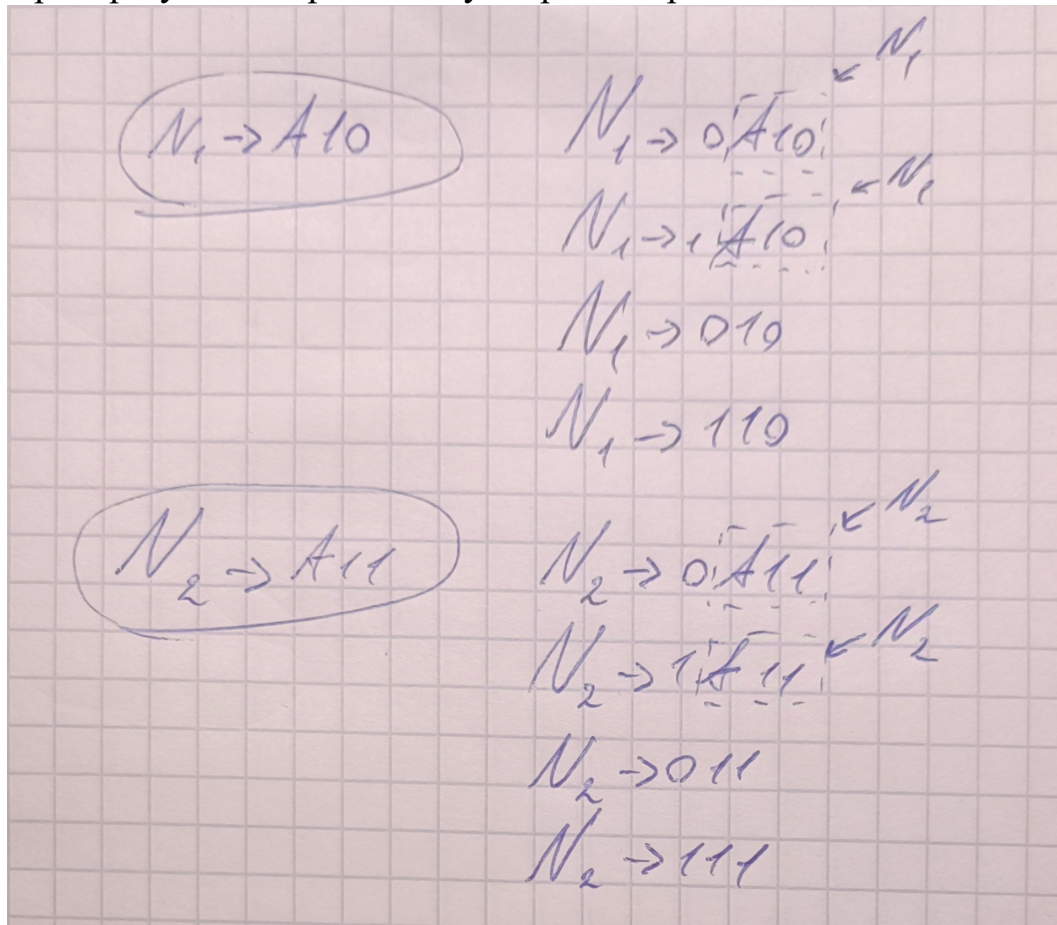 N₁
N₁ → A10
N₁ → 0A10
N₁
N₁ → 1A10
N₁ → 010
N₁ → 110
N₂
N₂ → A11
N₂ → 0A11
N₂
N₂ → 1A11
N₂ → 011
N₂ → 111